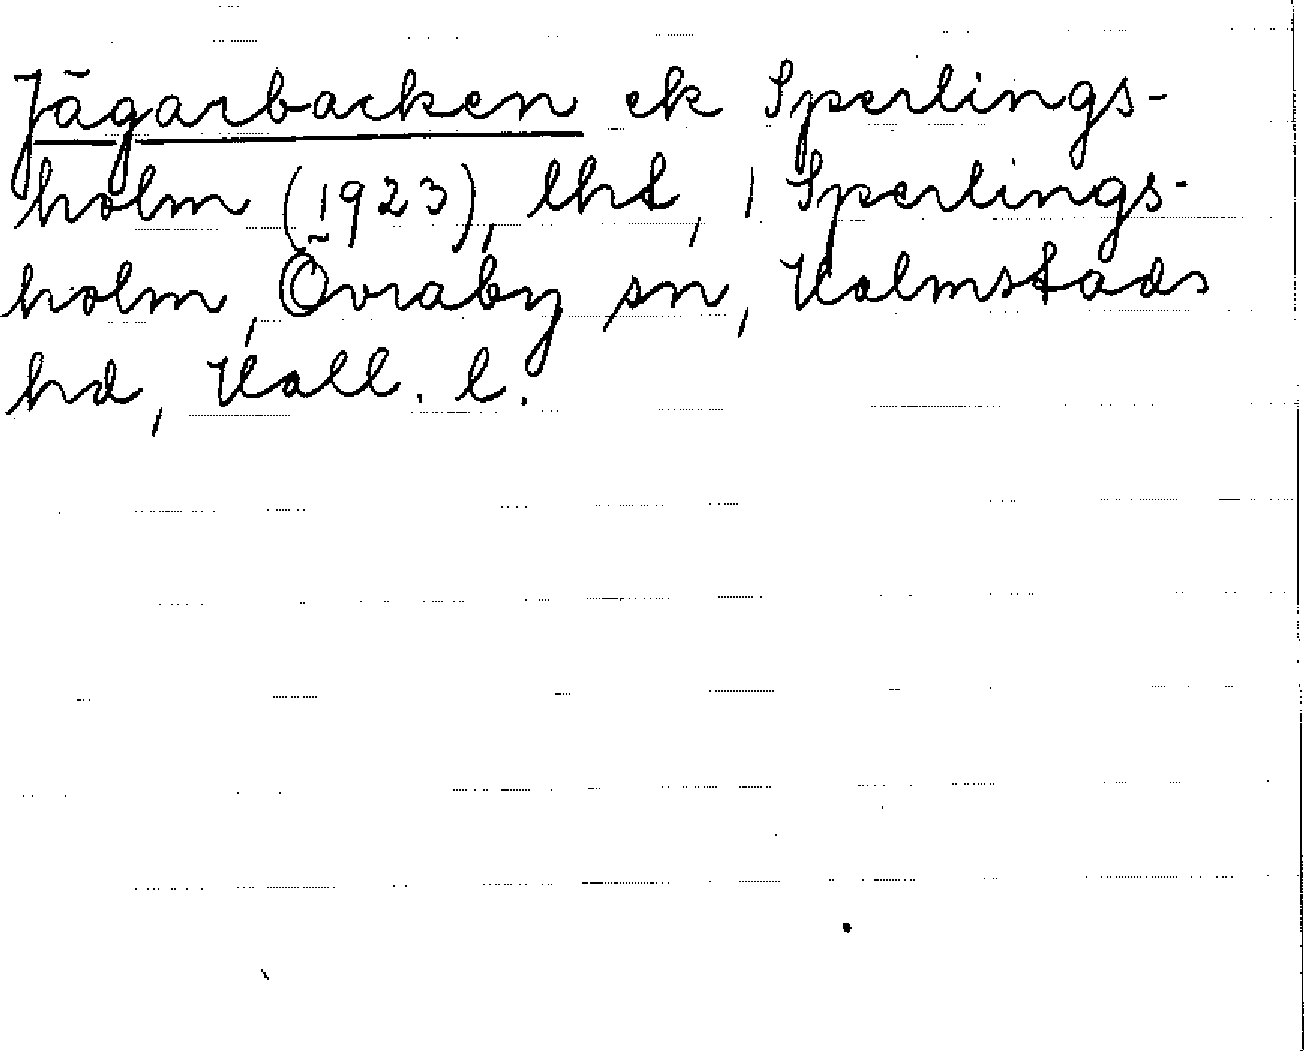 Jägarbacken ek Sperlings-
holm (1923), lhd, 1 Sperlings-
holm, Övraby sn, Halmstads
hd, Hall. l.